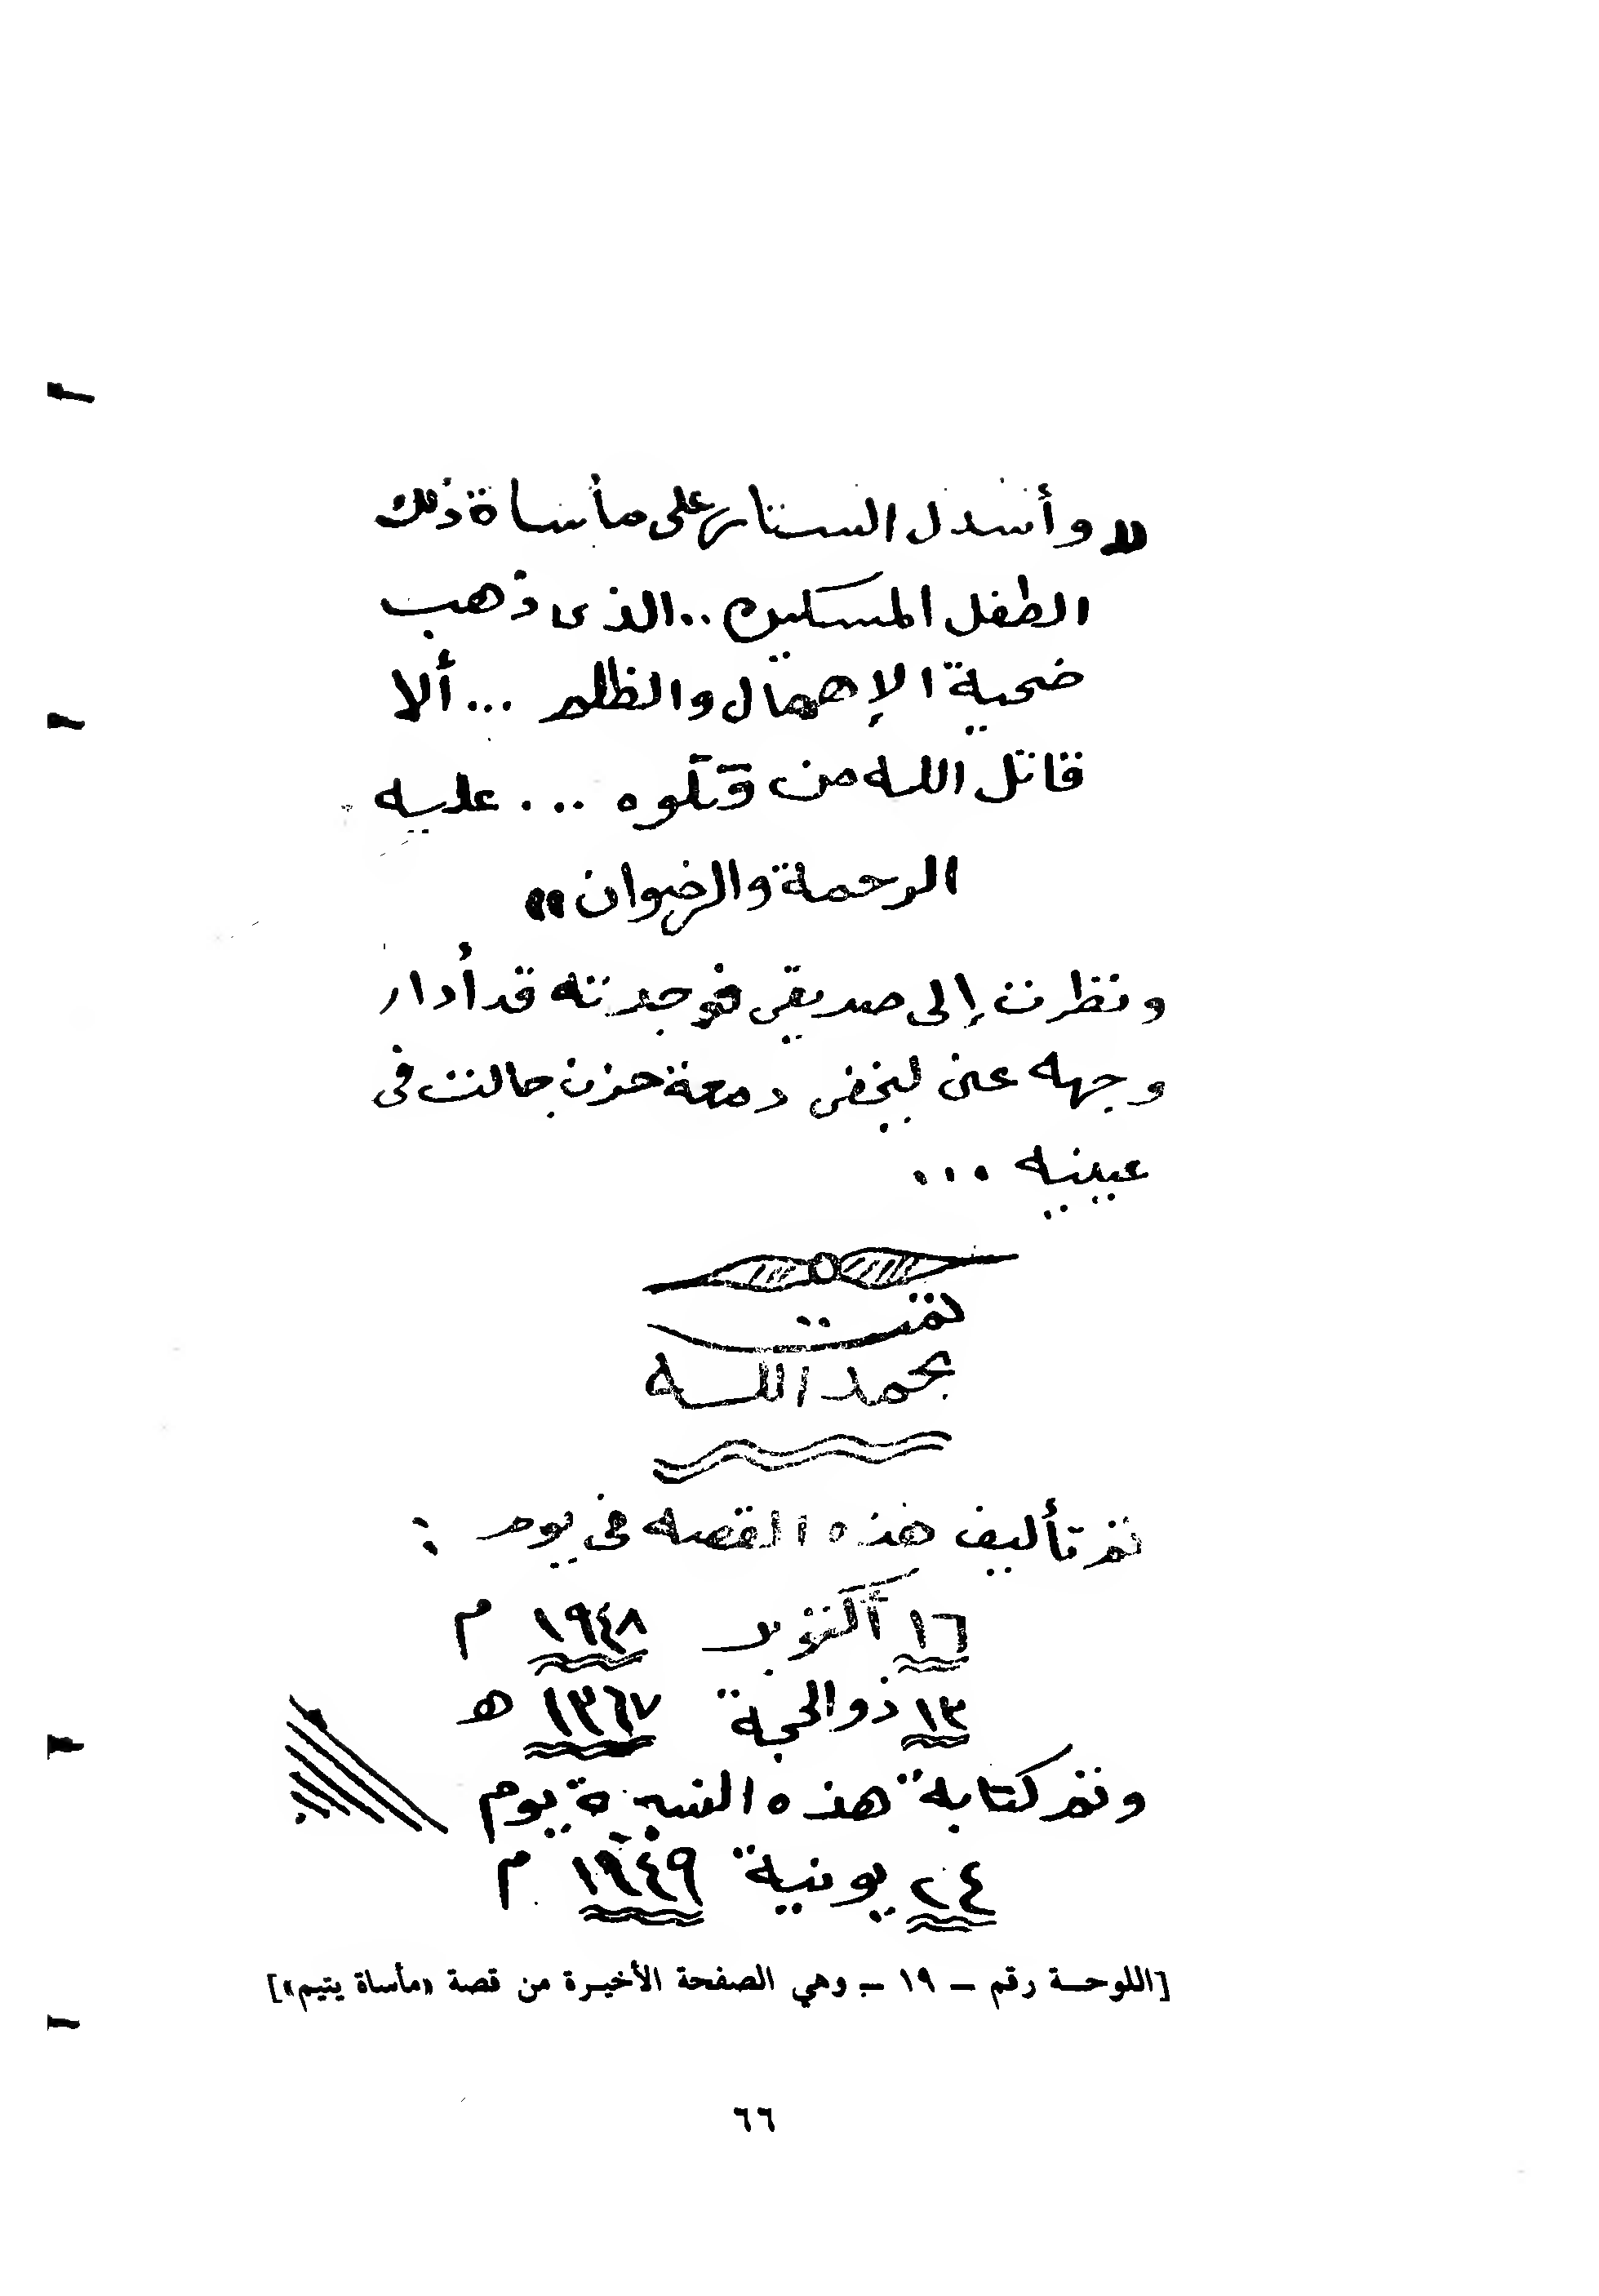 «وأسدل الستار على مأساة ذلك
الطفل المسكين .. الذى ذهب
ضحية الإهمال والظلم ... ألا
قاتل الله من قتلوه ... عليه
الرحمة والرضوان»
ونظرت إلى صديقى فوجدته قد أدار
وجهه عنى ليخفى دمعة حزن جالت فى
عينيه ...
تمت
بحمد الله
تم تأليف هذه القصه فى يوم :
١٦ أكتوبر ١٩٤٨ م
١٣ ذو الحجة ١٣٦٧ ھ
وتم كتابة هذه النبذة يوم
٢٤ يونية ١٩٤٩ م
[اللوحة رقم – ١٩ – وهي الصفحة الأخيرة من قصة «مأساة يتيم»]
٦٦